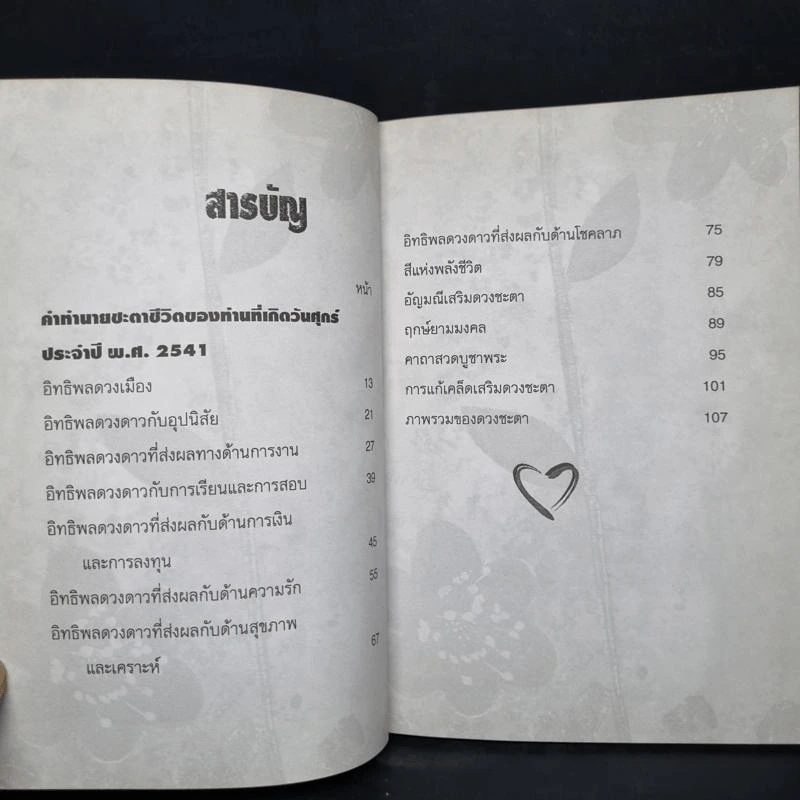 สารบัญ
หน้า
คำทำนายชะตาชีวิตของท่านที่เกิดวันศุกร์
ประจำปี พ.ศ. 2541
อิทธิพลดวงเมือง 13
อิทธิพลดวงดาวกับอุปนิสัย 21
อิทธิพลดวงดาวที่ส่งผลทางด้านการงาน 27
อิทธิพลดวงดาวกับการเรียนและการสอบ 39
อิทธิพลดวงดาวที่ส่งผลกับด้านการเงิน
และการลงทุน 45
อิทธิพลดวงดาวที่ส่งผลกับด้านความรัก 55
อิทธิพลดวงดาวที่ส่งผลกับด้านสุขภาพ
และเคราะห์ 67
อิทธิพลดวงดาวที่ส่งผลกับด้านโชคลาภ 75
สีแห่งพลังชีวิต 79
อัญมณีเสริมดวงชะตา 85
ฤกษ์ยามมงคล 89
คาถาสวดบูชาพระ 95
การแก้เคล็ดเสริมดวงชะตา 101
ภาพรวมของดวงชะตา 107